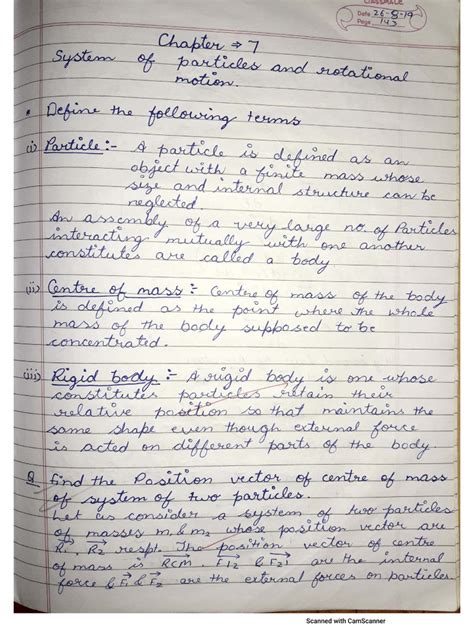 CLASSMATE
Date 26-8-19
Page 143
Chapter ⇒ 7
System of particles and rotational
motion.
• Define the following terms
(i) Particle :- A particle is defined as an
object with a finite mass whose
size and internal structure can be
neglected
An assembly of a very large no. of Particles
interacting mutually with one another
constitutes are called a body
(ii) Centre of mass :- Centre of mass of the body
is defined as the point where the whole
mass of the body supposed to be
concentrated.
(iii) Rigid body :- A rigid body is one whose
constitutes particles retain their
relative position so that maintains the
same shape even though external force
is acted on different parts of the body.
Q Find the Position vector of centre of mass
of system of two particles.
Let us consider a system of two particles
of masses m1 & m2 whose position vector are
R1, R2 respt. The position vector of centre
of mass is RCM. F12 & F21 are the internal
force & F1 & F2 are the external forces on particles.
Scanned with CamScanner